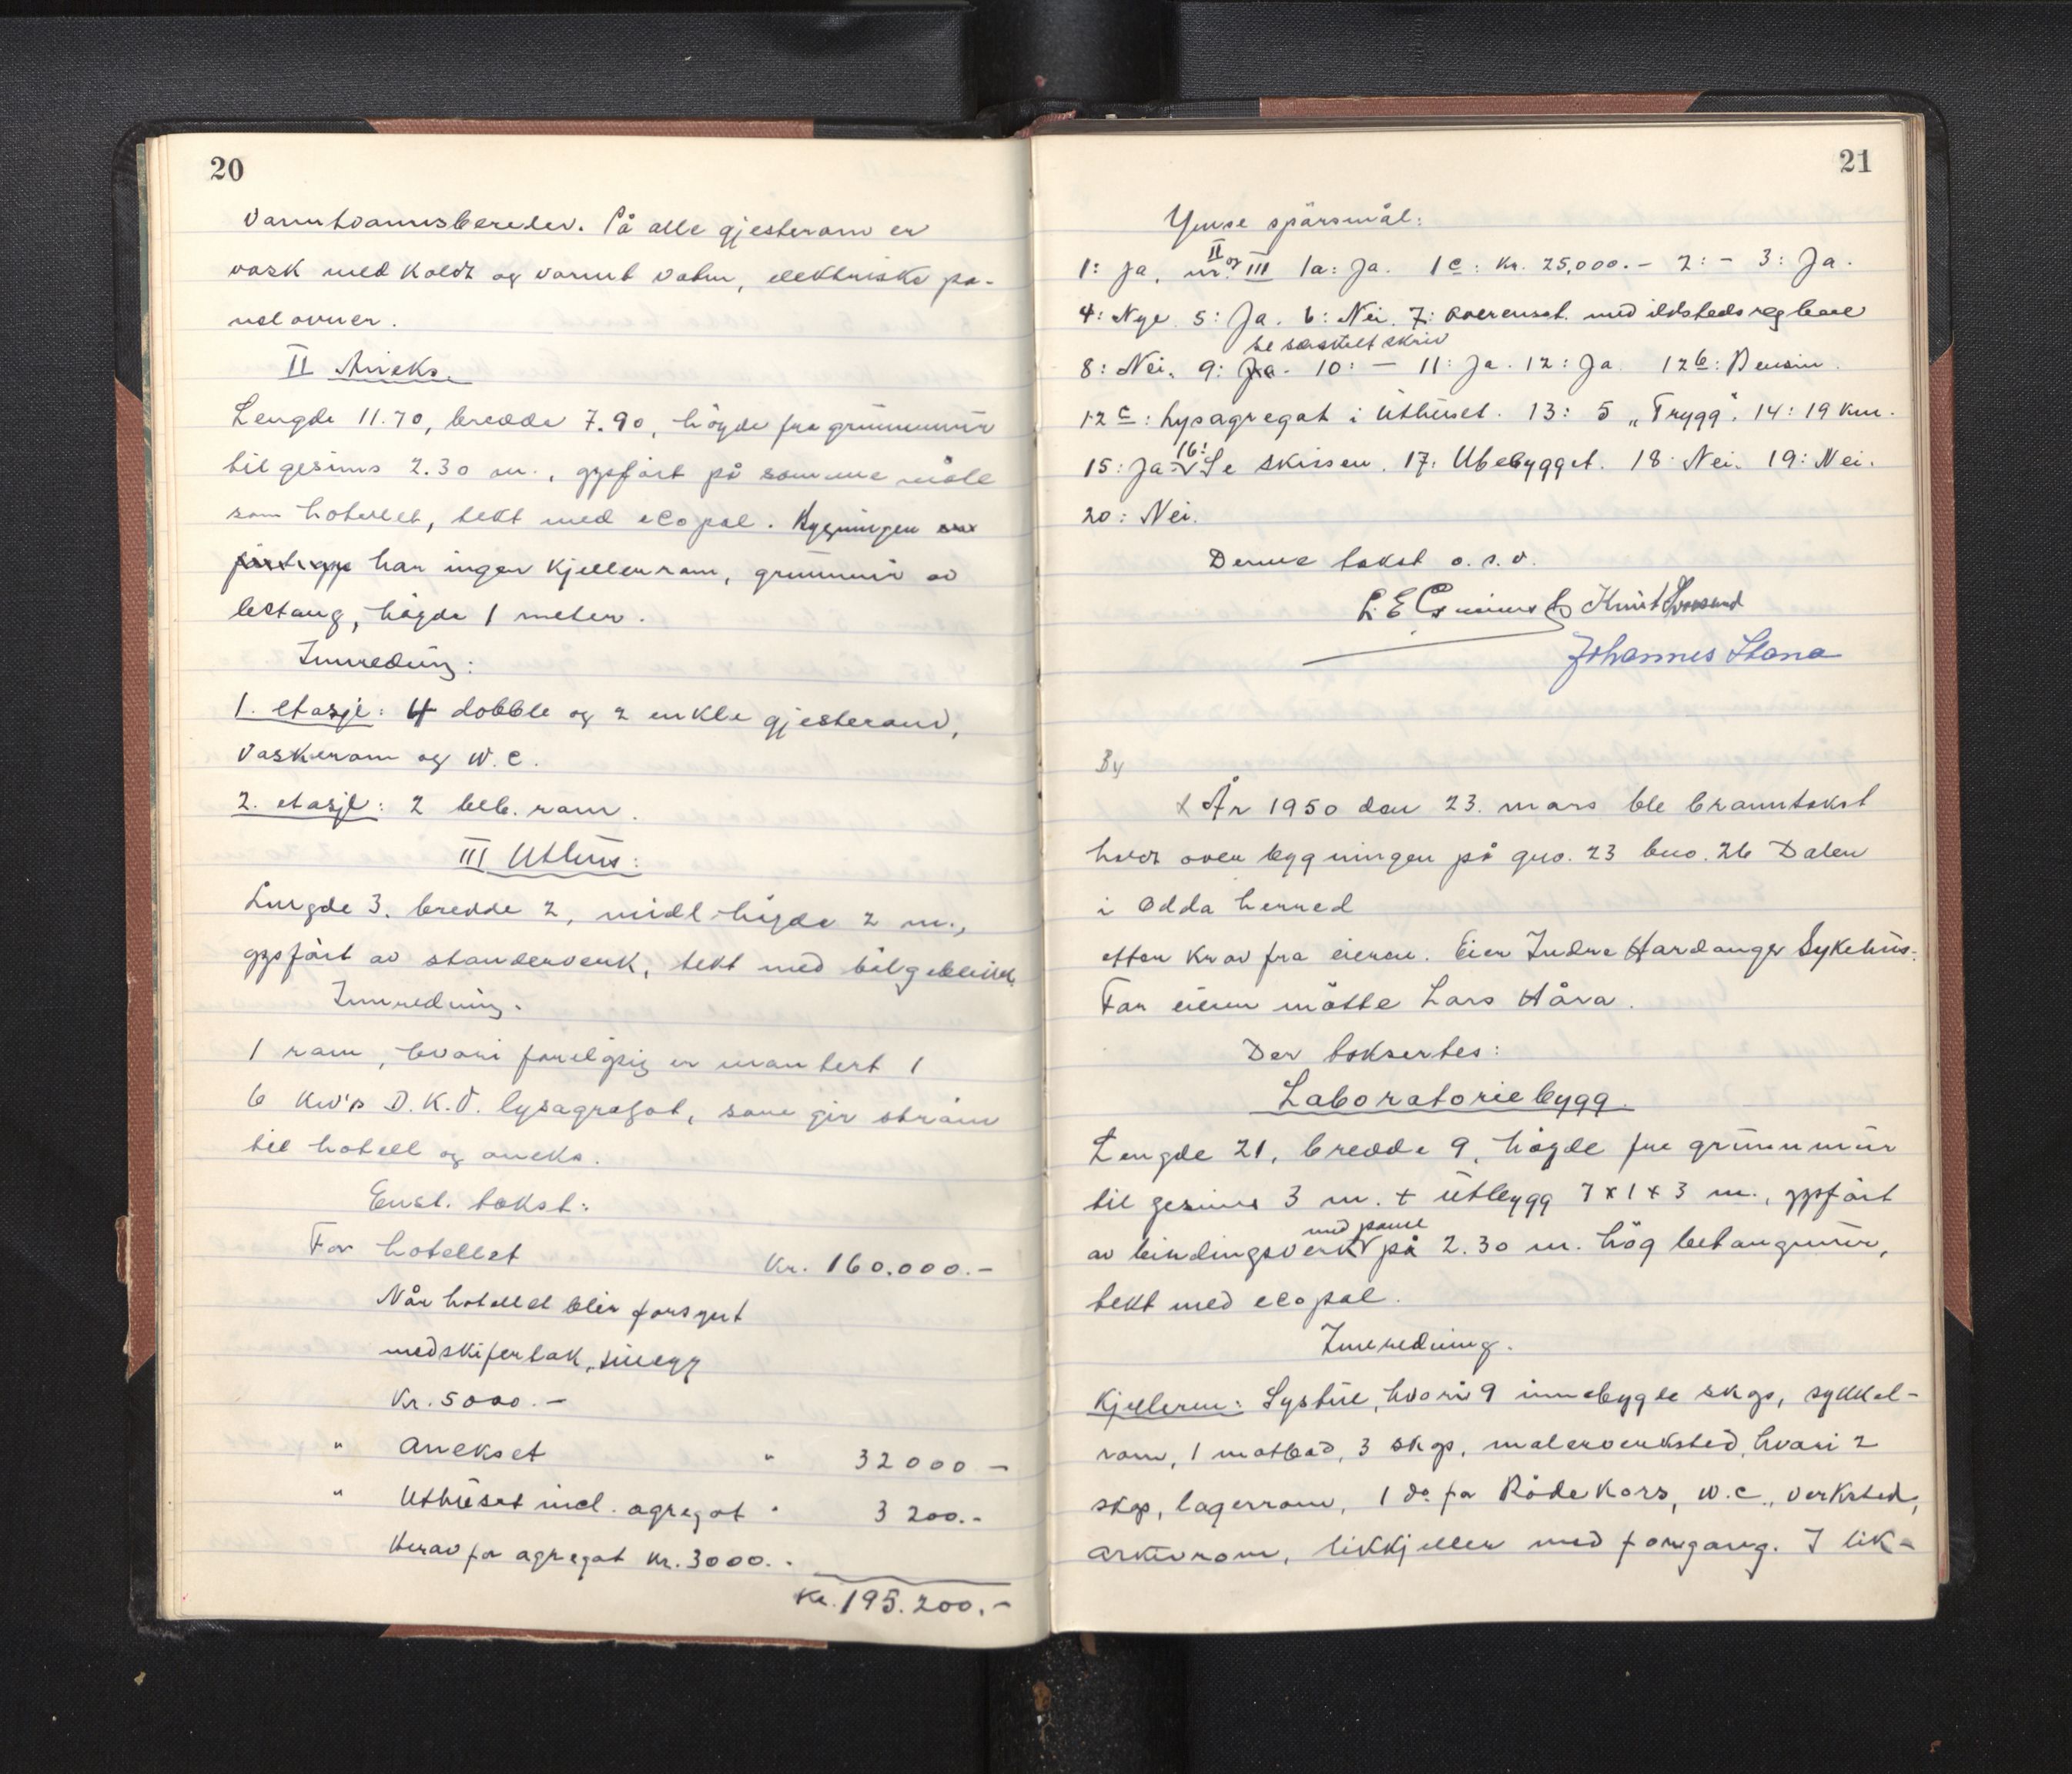 20
varmtvannsbereder. På alle gjesterom er
vask med koldt og varmt vatn, elektriske pa-
nelovner.
II Aneks.
Lengde 11.70, bredde 7.90, högde fra grunnmur
til gesims 2.30 m., oppfört på samme måte
som hotellet, tekt med ecopal. Bygningen
har ingen kjellerrom, grunnmur av
betong, högde 1 meter.
Innredning:
1. etasje: 4 dobble og 2 enkle gjesterom,
vaskerom og W.C.
2. etasje: 2 beb. rom.
III Uthus:
Lengde 3, bredde 2, midl. högde 2 m.,
oppfört av standerverk, tekt med bölgeblikk.
Innredning.
1 rom, hvori foreløpig er montert 1
6 Kw's D.K.V. lysagregat, som gir ström
til hotell og aneks.
Enst. takst:
For hotellet Kr. 160.000.-
Når hotellet blir forsynt
med skifertak, tillegg
Kr. 5000.-
" Anekset " 32000 -
" Uthuset incl. agregat " 3 200.-
Herav for agregat Kr. 3000.-
Kr. 195.200.-
21
Ymse spörsmål:
1: Ja, nr. II og III 1a: Ja. 1c: Kr. 25,000.- 2: - 3: Ja.
4: Nye 5: Ja. 6: Nei. 7: Overenst. med ildstedsreglene
se særskilt skriv
8: Nei. 9: Ja. 10: - 11: Ja. 12: Ja 12b: Bensin.
12c: Lysagregat i Uthuset. 13: 5 "Trygg". 14: 19 km.
15: Ja. 16: Se skissen. 17: Ubebygget. 18: Nei. 19: Nei.
20: Nei.
Denne takst o.s.v.
Knut
Johannes
By
x År 1950 den 23. mars ble branntakst
holdt over bygningen på gno. 23 bno. 26 Dalen
i Odda herred
etter krav fra eieren. Eier Indre Hardanger Sykehus.
For eieren mötte Lars Håra.
Der taksertes:
Laboratoriebygg.
Lengde 21, bredde 9, högde fra grunnmur
til gesims 3 m. + utbygg 7x1x3 m., oppfört
av bindingsverk med panel på 2.30 m. hög betongmur,
tekt med ecopal.
Innredning.
Kjelleren: Systue, hvori 9 innebygde skap, sykkel-
rom, 1 matbod, 3 skap, malerverksted, hvori 2
skap, lagerrom, 1 do for Röde Kors, W.C., verksted,
arkivrom, likkjeller med forgang. I lik-